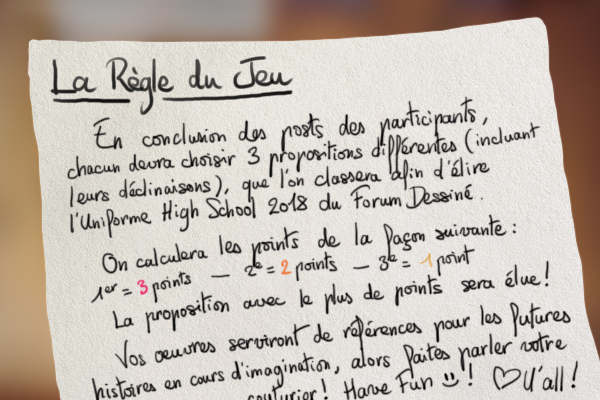 La Règle du Jeu
En conclusion des posts des participants,
chacun devra choisir 3 propositions différentes (incluant
leurs déclinaisons), que l'on classera afin d'élire
l'Uniforme High School 2018 du Forum Dessiné.
On calculera les points de la façon suivante :
1er = 3 points — 2e = 2 points — 3e = 1 point
La proposition avec le plus de points sera élue !
Vos œuvres serviront de références pour les futures
histoires en cours d'imagination, alors faites parler votre
couturier ! Have Fun ☺ ! ♡ U'all !